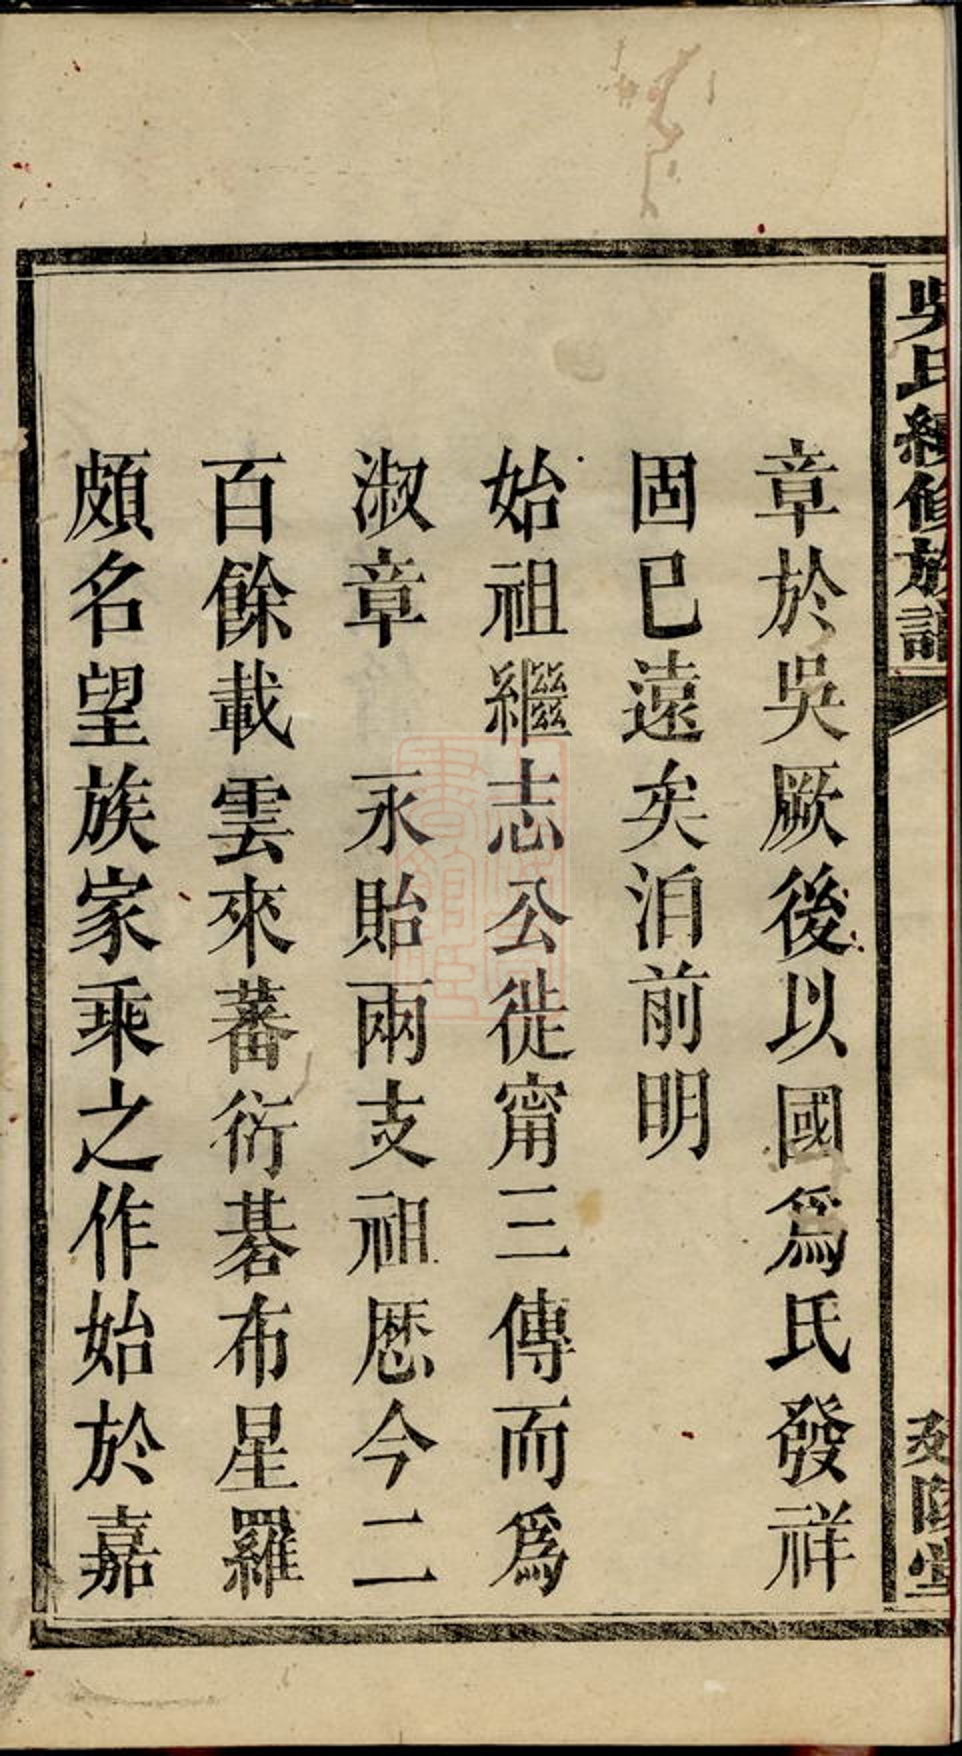 吳氏續修族譜
延陵堂
章於吳厥後以國爲氏發祥
固已遠矣洎前明
始祖繼志公徙甯三傳而爲
淑章 永貽兩支祖歷今二
百餘載雲來蕃衍碁布星羅
頗名望族家乘之作始於嘉